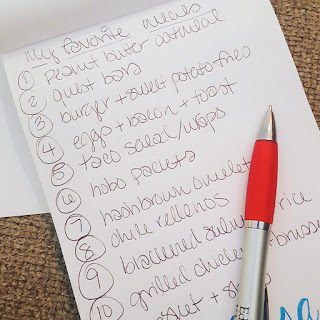 my favorite meals
1 peanut butter oatmeal
2 quest bars
3 burger + sweet potato fries
4 eggs + bacon + toast
5 taco salad/wraps
6 hobo packets
7 hashbrown omelet
8 chile rellenos
9 blackened rice
10 grilled chicken +
+